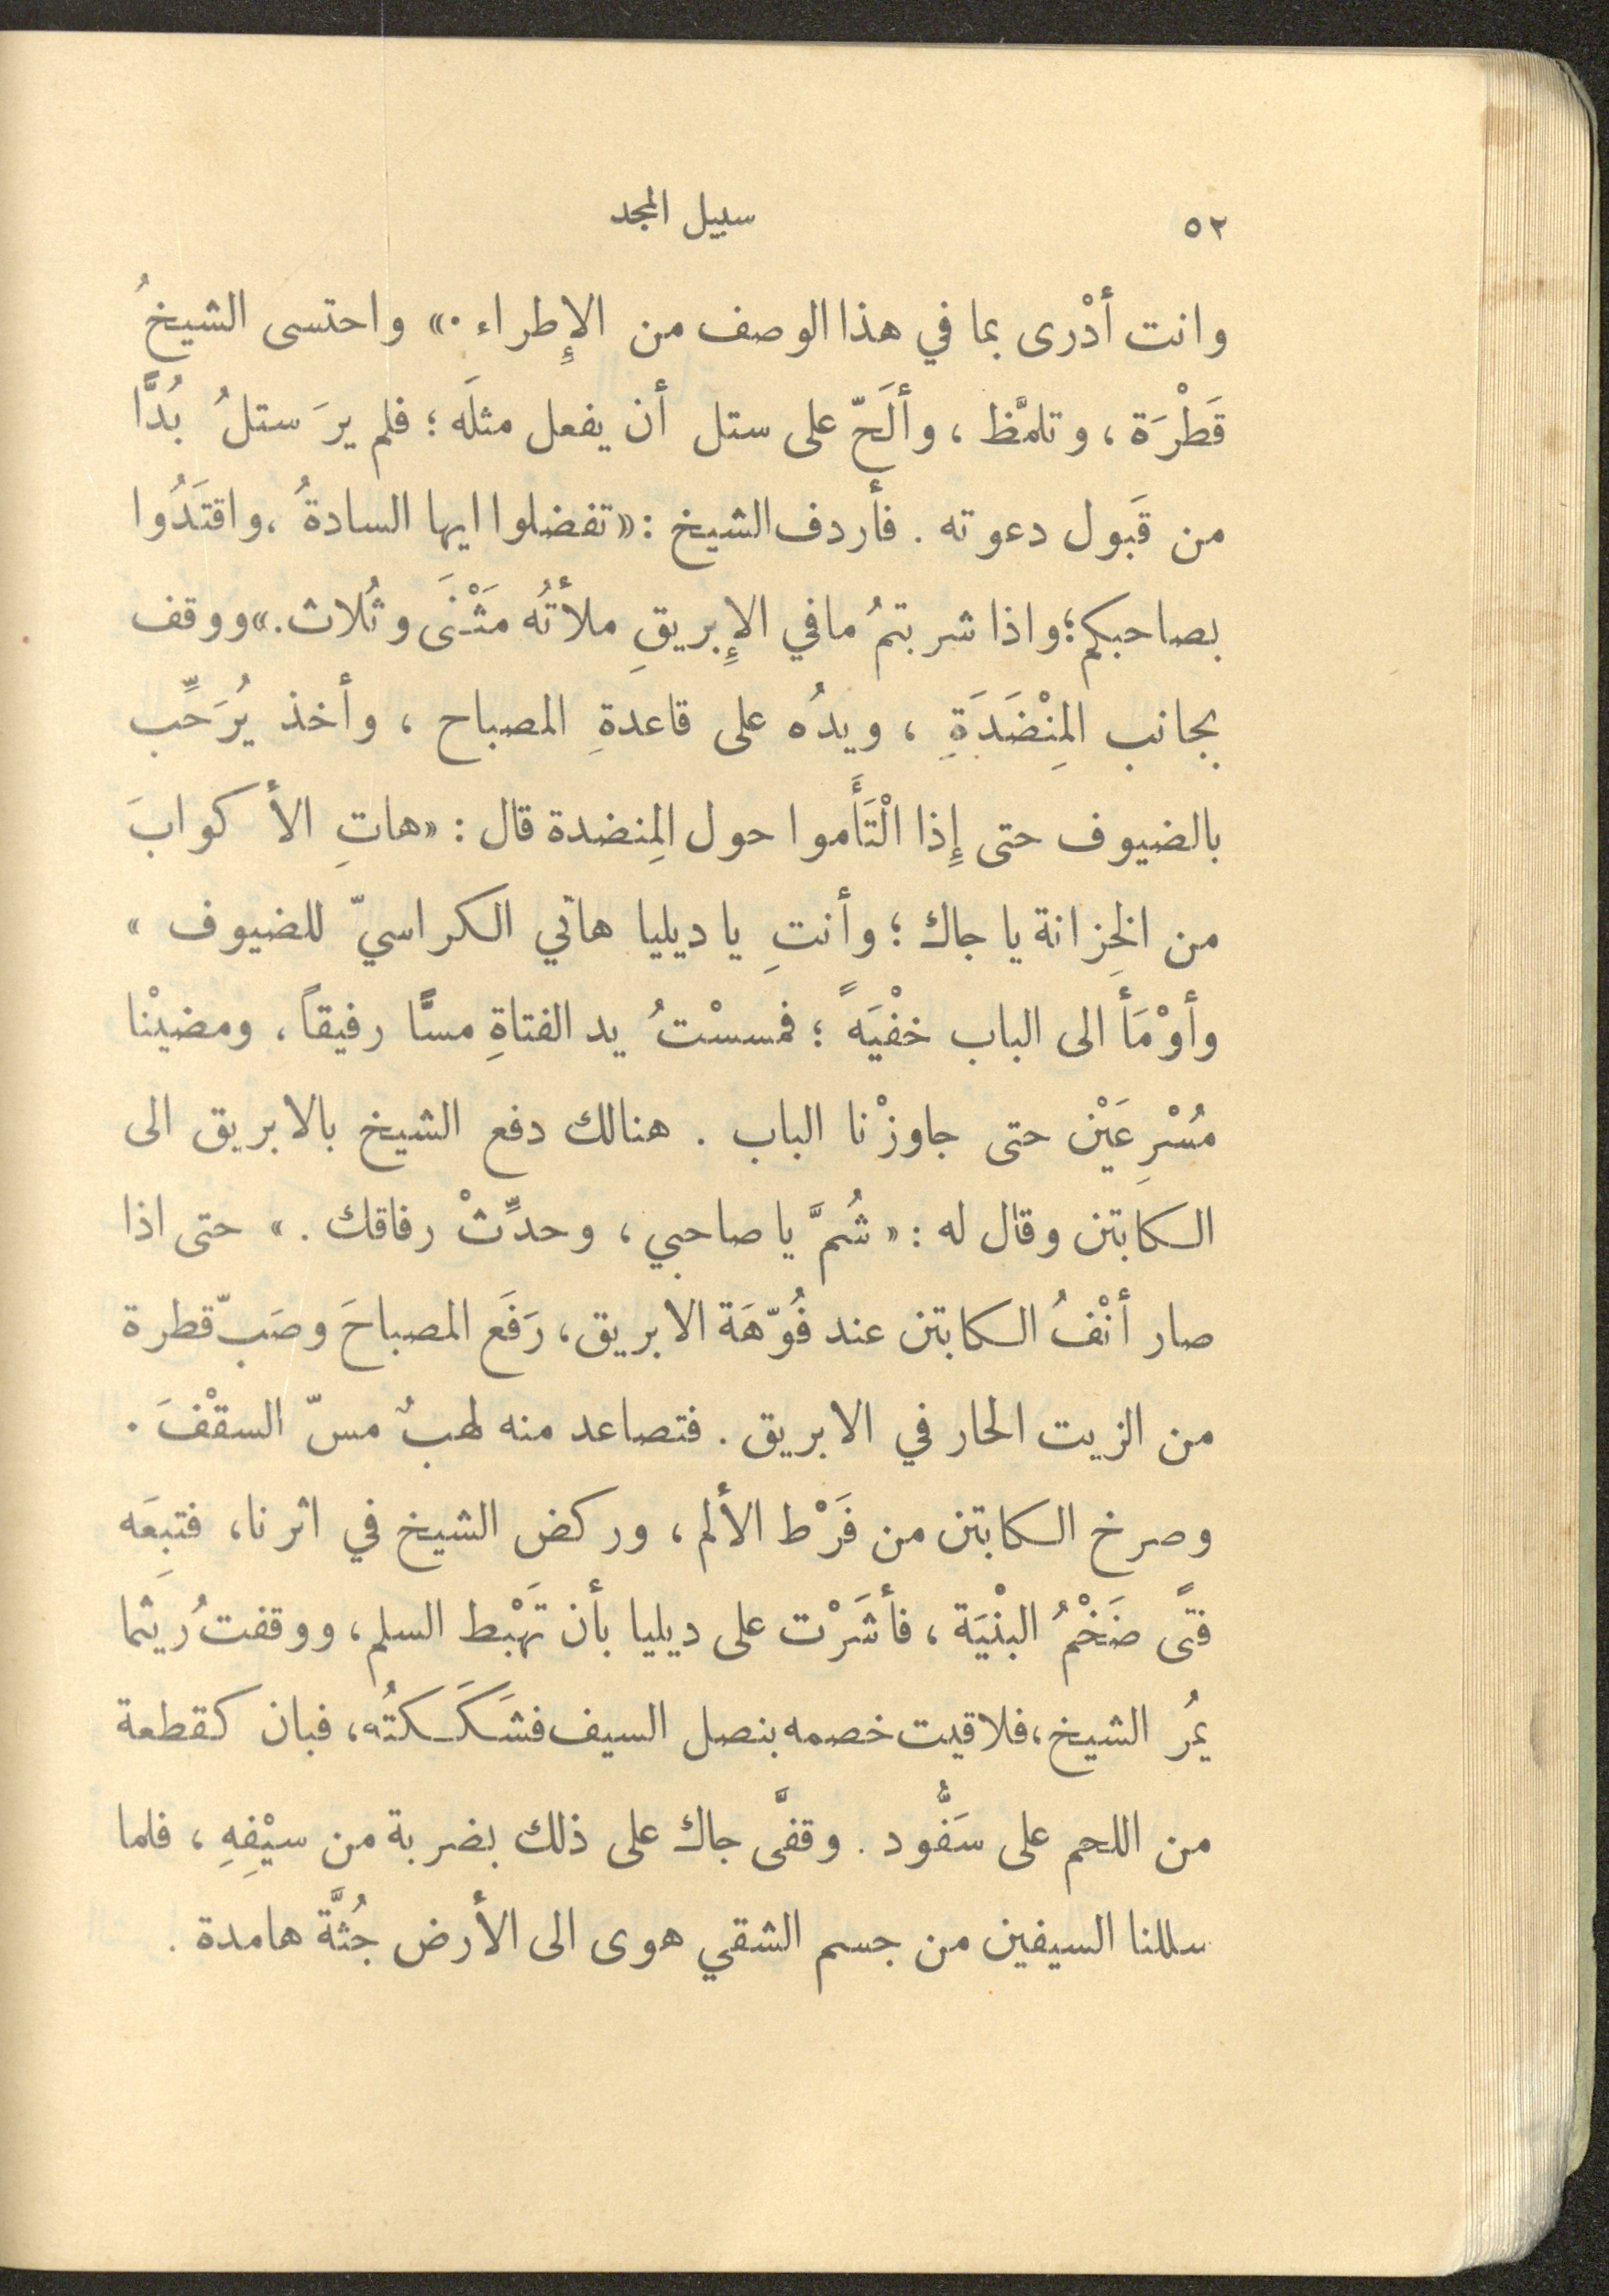 ٥٢ سبيل المجد
وانت أدْرى بما في هذا الوصف من الإِطراء.» واحتسى الشيخُ
قَطْرَة ، وتلمَّظ ، وألَحّ على ستل أن يفعل مثلَه ؛ فلم يرَ ستلُ بُدًّا
من قَبول دعوته . فأردف الشيخ : «تفضلوا ايها السادةُ ، واقتَدُوا
بصاحبكم ؛ واذا شربتمُ مافي الإِبريقِ ملأتُه مَثْنَى وثُلاث.» ووقف
بجانب المِنْضَدَةِ ، ويدُه على قاعدةِ المصباح ، وأخذ يُرَحِّب
بالضيوف حتى إِذا الْتَأَموا حول المِنضدة قال : «هاتِ الأكوابَ
من الخِزانة يا جاك ؛ وأنتِ يا ديليا هاتي الكراسيّ للضيوف »
وأوْمَأ الى الباب خفْيَةً ؛ فمسسْتُ يد الفتاةِ مسًّا رفيقاً ، ومضيْنا
مُسْرِعَيْن حتى جاوزْنا الباب . هنالك دفع الشيخ بالابريق الى
الكابتن وقال له : « شُمَّ يا صاحبي ، وحدِّثْ رفاقك . » حتى اذا
صار أنْفُ الكابتن عند فُوّهَة الابريق ، رَفَع المصباحَ وصَبّ قطرة
من الزيت الحار في الابريق . فتصاعد منه لهبٌ مسّ السقْفَ .
وصرخ الكابتن من فَرْط الألم ، وركض الشيخ في اثرنا ، فتبِعَه
فتًى ضَخْمُ البنْيَة ، فأشَرْت على ديليا بأن تَهْبْط السلم ، ووقفتُ رَيثما
يمُر الشيخ ، فلاقيت خصمه بنصل السيف فشَكَكتُه ، فبان كقطعة
من اللحم على سَفُّود . وقفَّى جاك على ذلك بضربة من سيْفِهِ ، فلما
سللنا السيفين من جسم الشقي هوى الى الأرض جُثَّة هامدة .